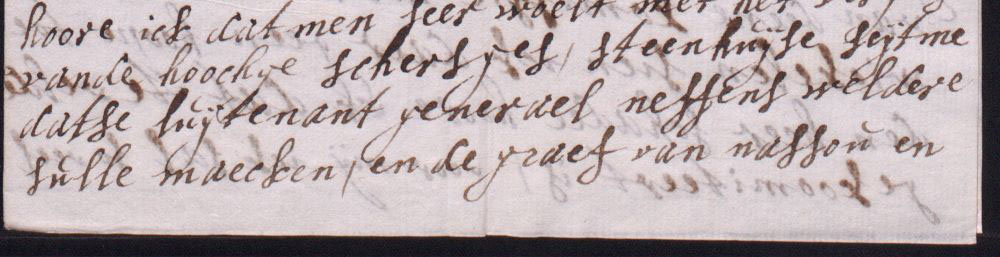 hoore ick dat men seer woelt met het
vande hoochge schersyes, steenhuijse seijt me
datse luijtenant generael neffens weldere
sulle maecken, en de graef van nassou en